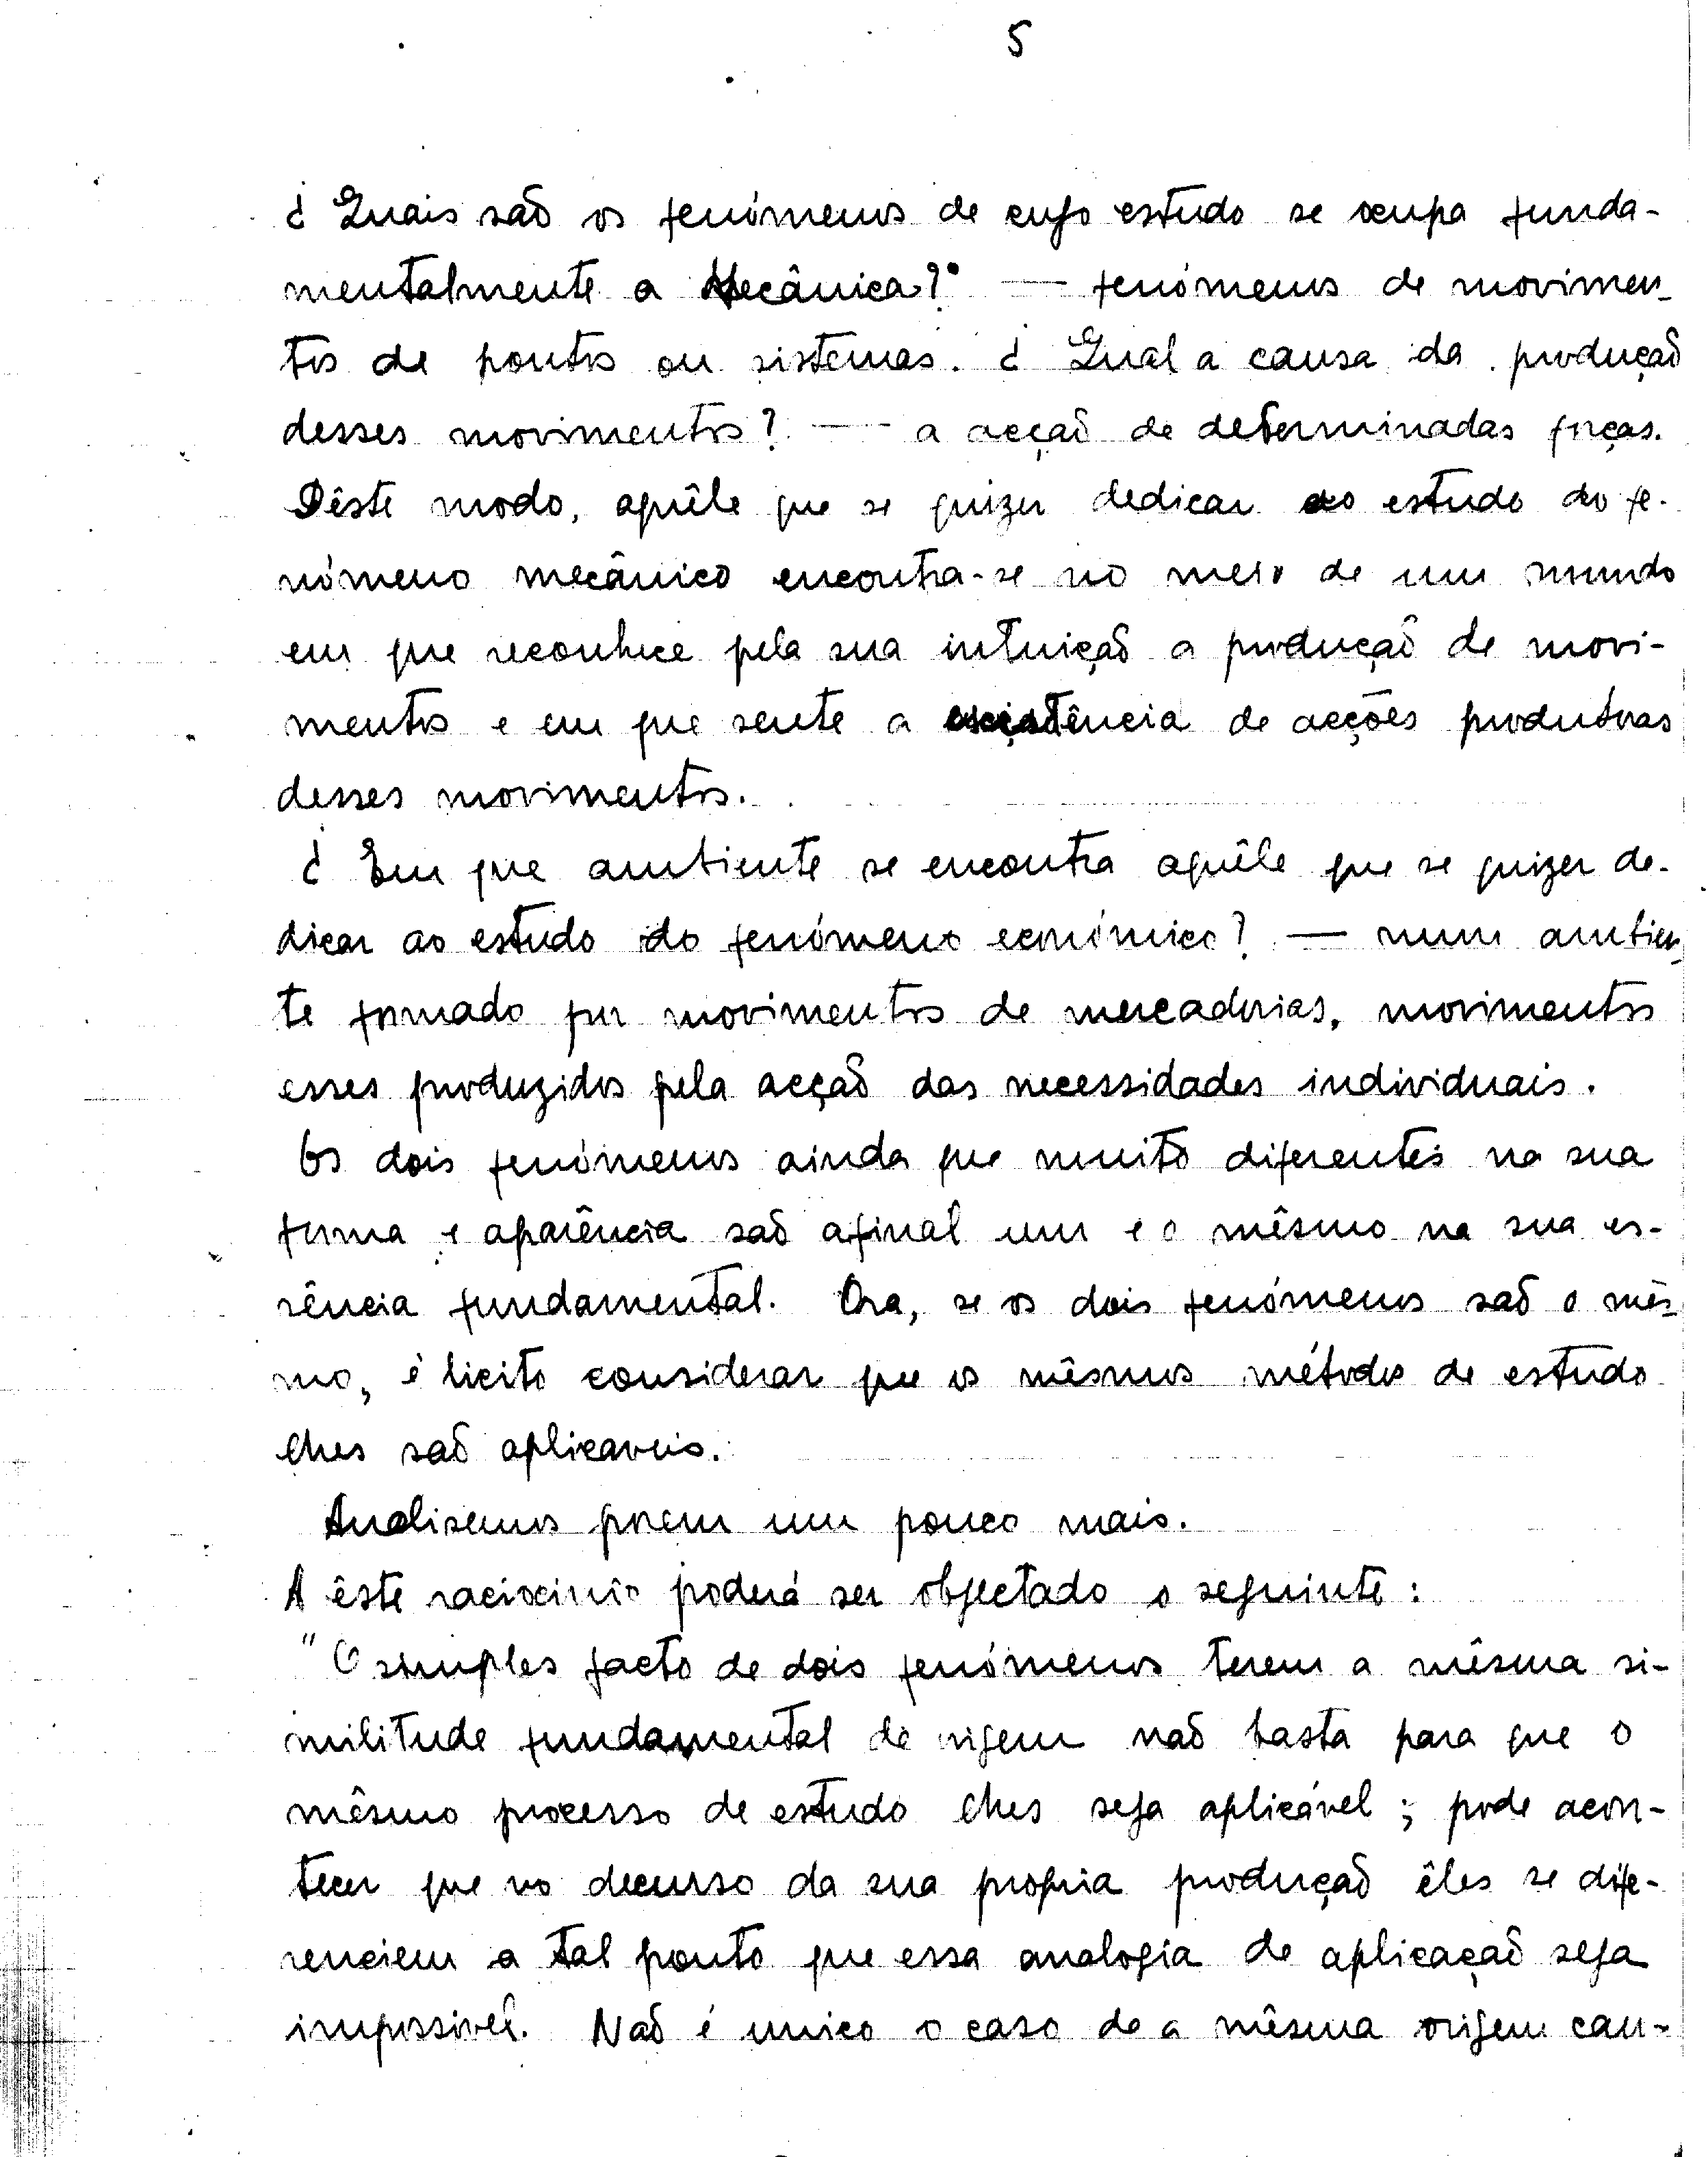 5
¿ Quais são os fenómenos de cujo estudo se ocupa funda-
mentalmente a Mecânica? — fenómenos de movimen-
tos de pontos ou sistemas. ¿ Qual a causa da produção
desses movimentos? — a acção de determinadas forças.
Dêste modo, aquêle que se quizer dedicar ao estudo do fe-
nómeno mecânico encontra-se no meio de um mundo
em que reconhece pela sua intuição a produção de movi-
mentos e em que sente a existência de acções produtoras
desses movimentos.
¿ Em que ambiente se encontra aquêle que se quizer de-
dicar ao estudo do fenómeno económico? — num ambien-
te formado por movimentos de mercadorias, movimentos
esses produzidos pela acção das necessidades individuais.
Os dois fenómenos ainda que muito diferentes na sua
forma e aparência são afinal um e o mêsmo na sua es-
sência fundamental. Ora, se os dois fenómenos são o mês-
mo, é licito considerar que os mêsmos métodos de estudo
lhes são aplicaveis.
Analisemos porem um pouco mais.
A êste raciocinio poderá ser objectado o seguinte:
"O simples facto de dois fenómenos terem a mêsma si-
militude fundamental de origem não basta para que o
mêsmo processo de estudo lhes seja aplicável; pode acon-
tecer que no decurso da sua propria produção êles se dife-
renciem a tal ponto que essa analogia de aplicação seja
impossivel. Não é unico o caso de a mêsma origem cau-